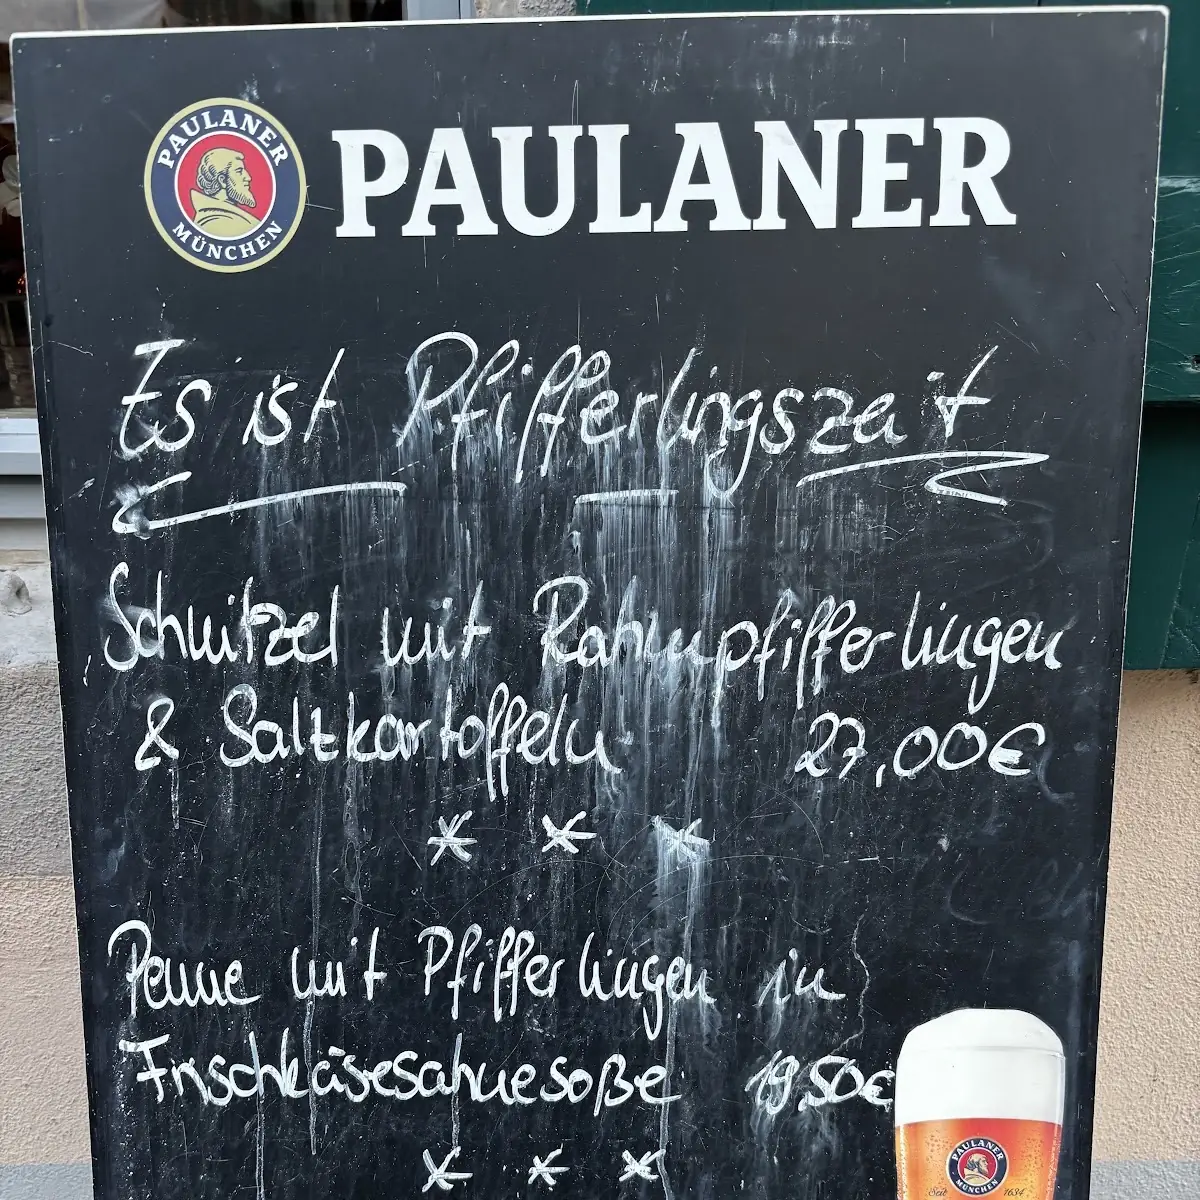 PAULANER
MÜNCHEN
PAULANER
Es ist Pfifferlingszeit
Schnitzel mit Rahmpfifferlingen
& Salzkartoffeln 27,00€
* * *
Penne mit Pfifferlingen in
Frischkäsesahnesoße 19,50€
* * *
PAULANER
MÜNCHEN
Seit 1634